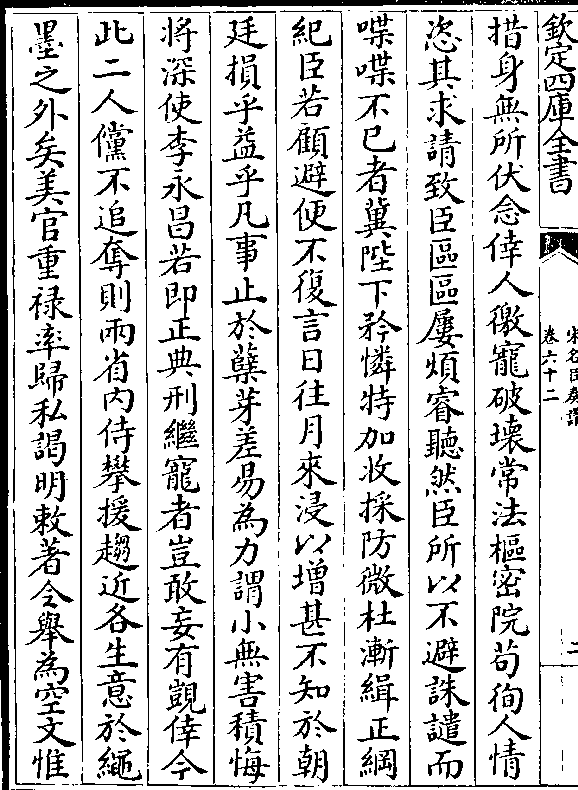 欽定四庫全書
宋名臣奏議
卷六十二
二
措身無所伏念倖人徼寵破壞常法樞密院苟徇人情
恣其求請致臣區區屢煩睿聽然臣所以不避誅譴而
喋喋不已者冀陛下矜憐特加收採防微杜漸緝正綱
紀臣若顧避便不復言日往月來浸以增甚不知於朝
廷損乎益乎凡事止於蘖芽差易為力謂小無害積悔
將深使李永昌若即正典刑繼寵者豈敢妄有覬倖今
此二人儻不追奪則兩省内侍攀援趨近各生意於繩
墨之外矣美官重禄率歸私謁明敕著令舉為空文惟